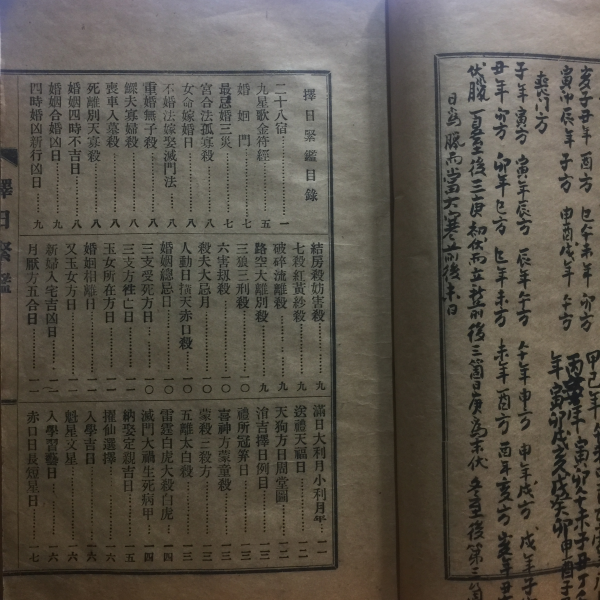 擇日緊鑑目錄
二十八宿……一
九星歌金符經……五
婚姻門……七
最忌婚三災……七
宮合法孤寡殺……八
女命嫁婚日……八
不婚法嫁娶滅門法……八
重婚無子殺……八
鰥夫寡婦殺……八
喪車入墓殺……八
死離別天寡殺……八
婚姻四時不吉日……八
婚姻合婚凶日……九
四時婚凶新行凶日……九
結房殺妨害殺……九
七殺紅黃紗殺……九
破碎流離殺……九
路空大離別殺……九
三狼三刑殺……一〇
六害刼殺……一〇
殺夫大忌月……一〇
人動日橫天赤口殺……一〇
婚姻總忌日……一〇
三支受死方日……一〇
三支方牲亡日……一一
玉女所在方日……一一
婚姻相離日……一一
又玉女方日……一一
新婦入宅吉凶日……一一
月厭方五合日……一一
滿日大利月小利月年……一一
送禮天福日……一二
天狗方日周堂圖……一二
洽吉擇日例日……一三
禮所冠筭日……一三
喜神方蒙童殺……一三
蒙殺三殺方……一三
五離太白殺……一三
雷霆白虎大殺白虎……一四
滅門大禍生死病甲……一四
納娶定親吉日……一五
擢仙選擇……一六
入學吉日……一六
魁星文星……一六
入學習藝日……一六
赤口日長短星日……一七
擇日緊鑑
亥子丑年 酉方 巳午未年 卯方
寅卯辰年 子方 申酉戌年 午方
喪門方
子年 寅方 寅年 辰方 辰年 午方 午年 申方 申年 戌方 戌年 子
丑年 卯方 卯年 巳方 巳年 未方 未年 酉方 酉年 亥方 亥年 丑
伏臘 夏至後三庚 初伏而立秋前後三箇日庚爲末伏 冬至後第三
日爲臘而當大寒前後未日